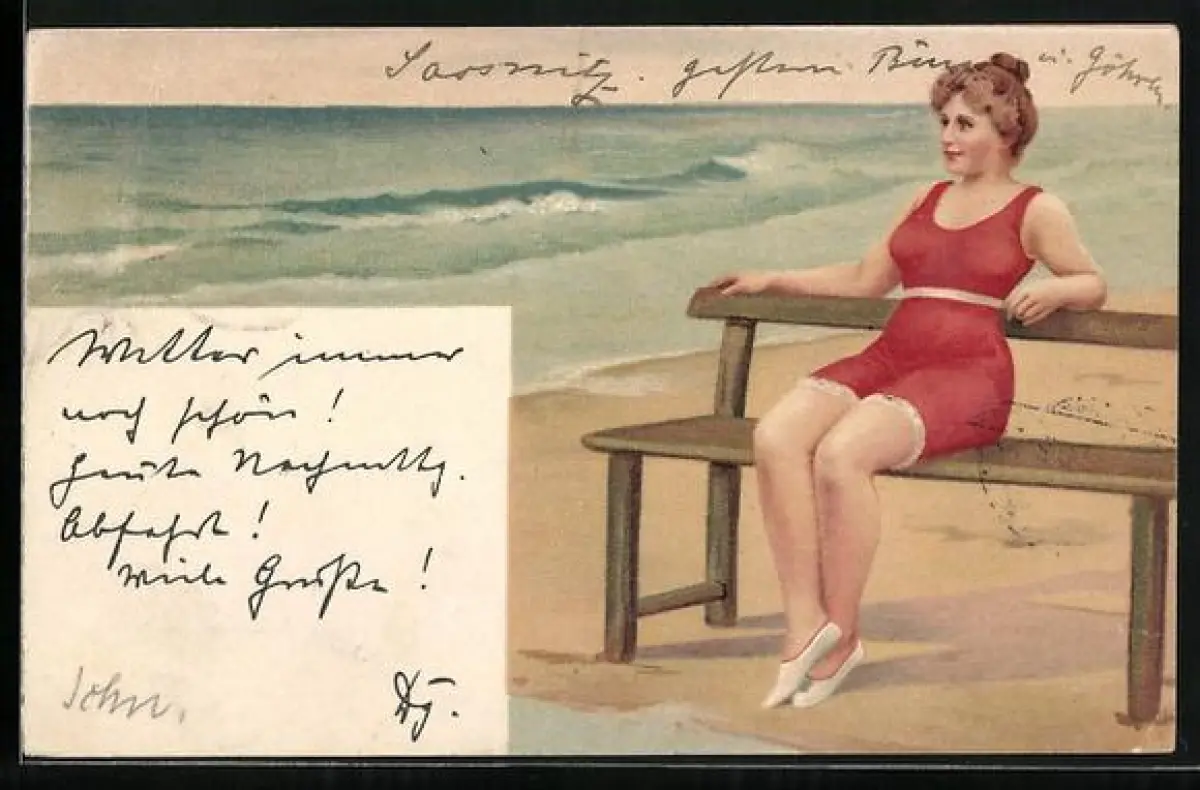 Sassnitz. gestern Binz u. Göhren
Wetter immer
noch schön!
Heute Nachmittg.
Abfahrt!
Viele Grüße!
John.